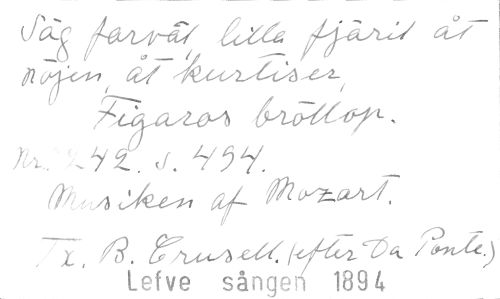 Säg farväl, lilla fjäril åt
nöjen, åt kurtiser,
Figaros bröllop.
Nr. 242. s. 494.
Musiken af Mozart.
Tx. B. Crusell. (efter Da Ponte.)
Lefve sången 1894